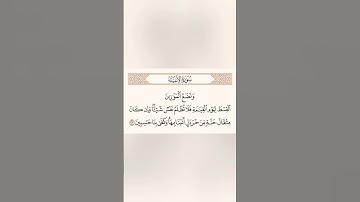 سُورَةُ الأَنبِيَاءِ
وَنَضَعُ ٱلْمَوَٰزِينَ
ٱلْقِسْطَ لِيَوْمِ ٱلْقِيَٰمَةِ فَلَا تُظْلَمُ نَفْسٌ شَيْـًٔا وَإِن كَانَ
مِثْقَالَ حَبَّةٍ مِّنْ خَرْدَلٍ أَتَيْنَا بِهَا وَكَفَىٰ بِنَا حَٰسِبِينَ ٤٧